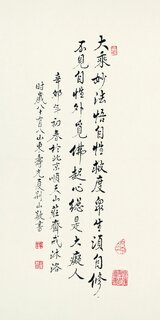 大乘妙法悟自性救度眾生須自修
不見自性外覓佛起心總是大癡人
辛卯年初春於北京順天山莊齋戒沐浴
时歲八十有八山東壽光夏荊山敬書